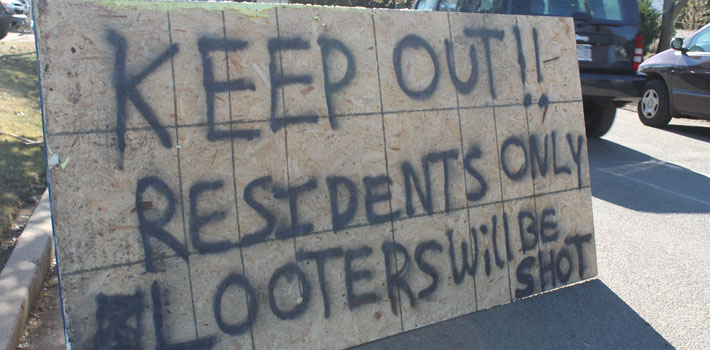 KEEP OUT!!
RESIDENTS ONLY
LOOTERS Will BE
SHOT